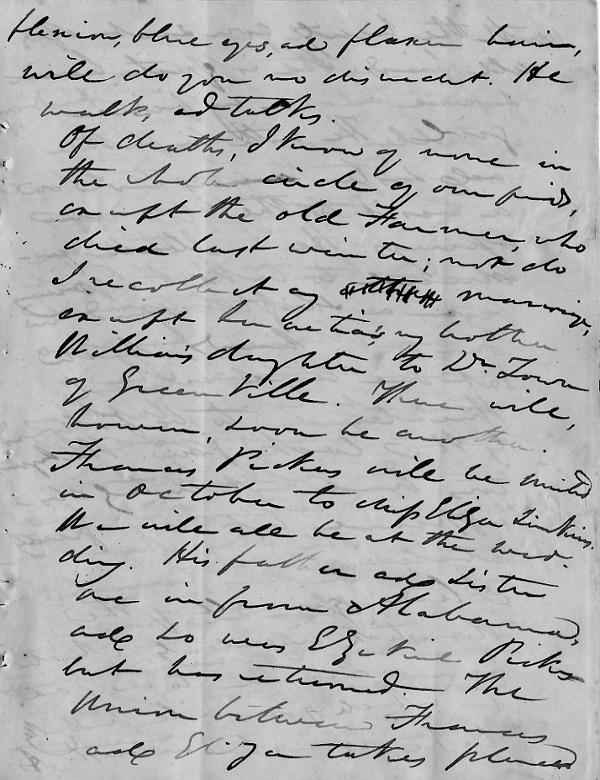 plexion, blue eyes, and flaxen hair,
will do you no discredit. He
walks, and talks.
Of deaths, I know of none in
the whole circle of our friends,
except the old Farmer, who
died last winter; nor do
I recollect any marriage,
except Lucretia, my brother
William's daughter to Dr. Town
of Greenville. There will,
however, soon be another.
Francis Pickens will be united
in October to Miss Eliza Simkins.
We will all be at the wed-
ding. His father and sister
are in from Alabama,
and so was Ezekiel Pickens
but has returned. The
Union between Francis
and Eliza takes place